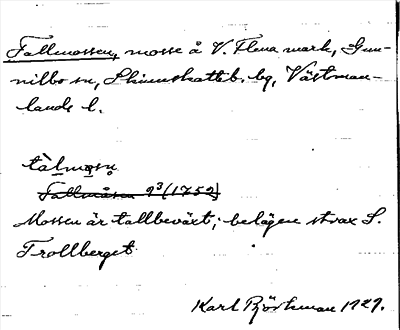 Fallmossen, mosse å V. Flena mark, Gun-
nilbo sn, Skinnskatteb. bg, Västman-
lands l.
tàlmọsn̥
Tallmåsen 93(1752)
Mossen är tallbeväxt; belägen strax S.
Trollberget
Karl Björkman 1929.